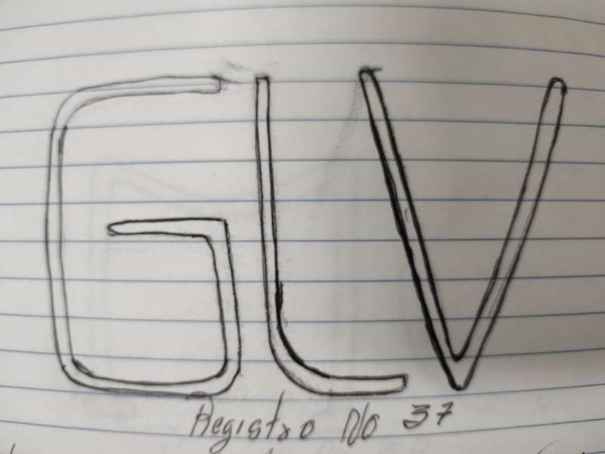 GLV
Registro No 37